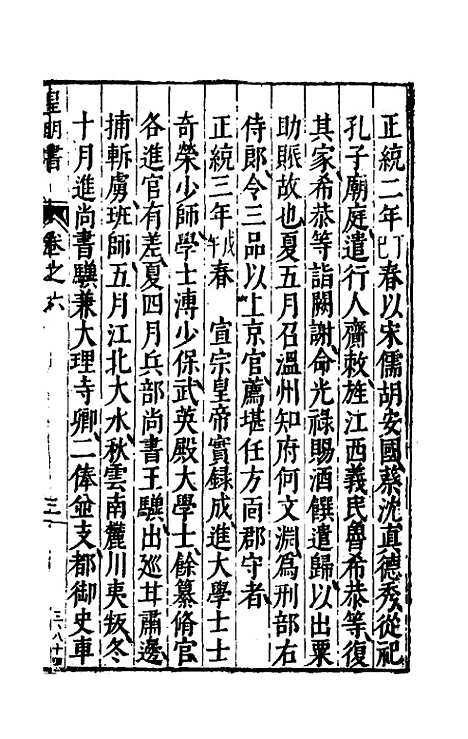 正統二年丁巳春以宋儒胡安國蔡沈真德秀從祀
孔子廟庭遣行人齎敕旌江西義民魯希恭等復
其家希恭等詣闕謝命光祿賜酒饌遣歸以出粟
助賑故也夏五月召溫州知府何文淵爲刑部右
侍郎令三品以上京官薦堪任方面郡守者
正統三年戊午春 宣宗皇帝實録成進大學士士
奇榮少師學士溥少保武英殿大學士餘纂脩官
各進官有差夏四月兵部尚書王驥出廵甘肅邊
捕斬虜班師五月江北大水秋雲南麓川夷叛冬
十月進尚書驥兼大理寺卿二俸並支都御史車
皇明書
卷之六
三